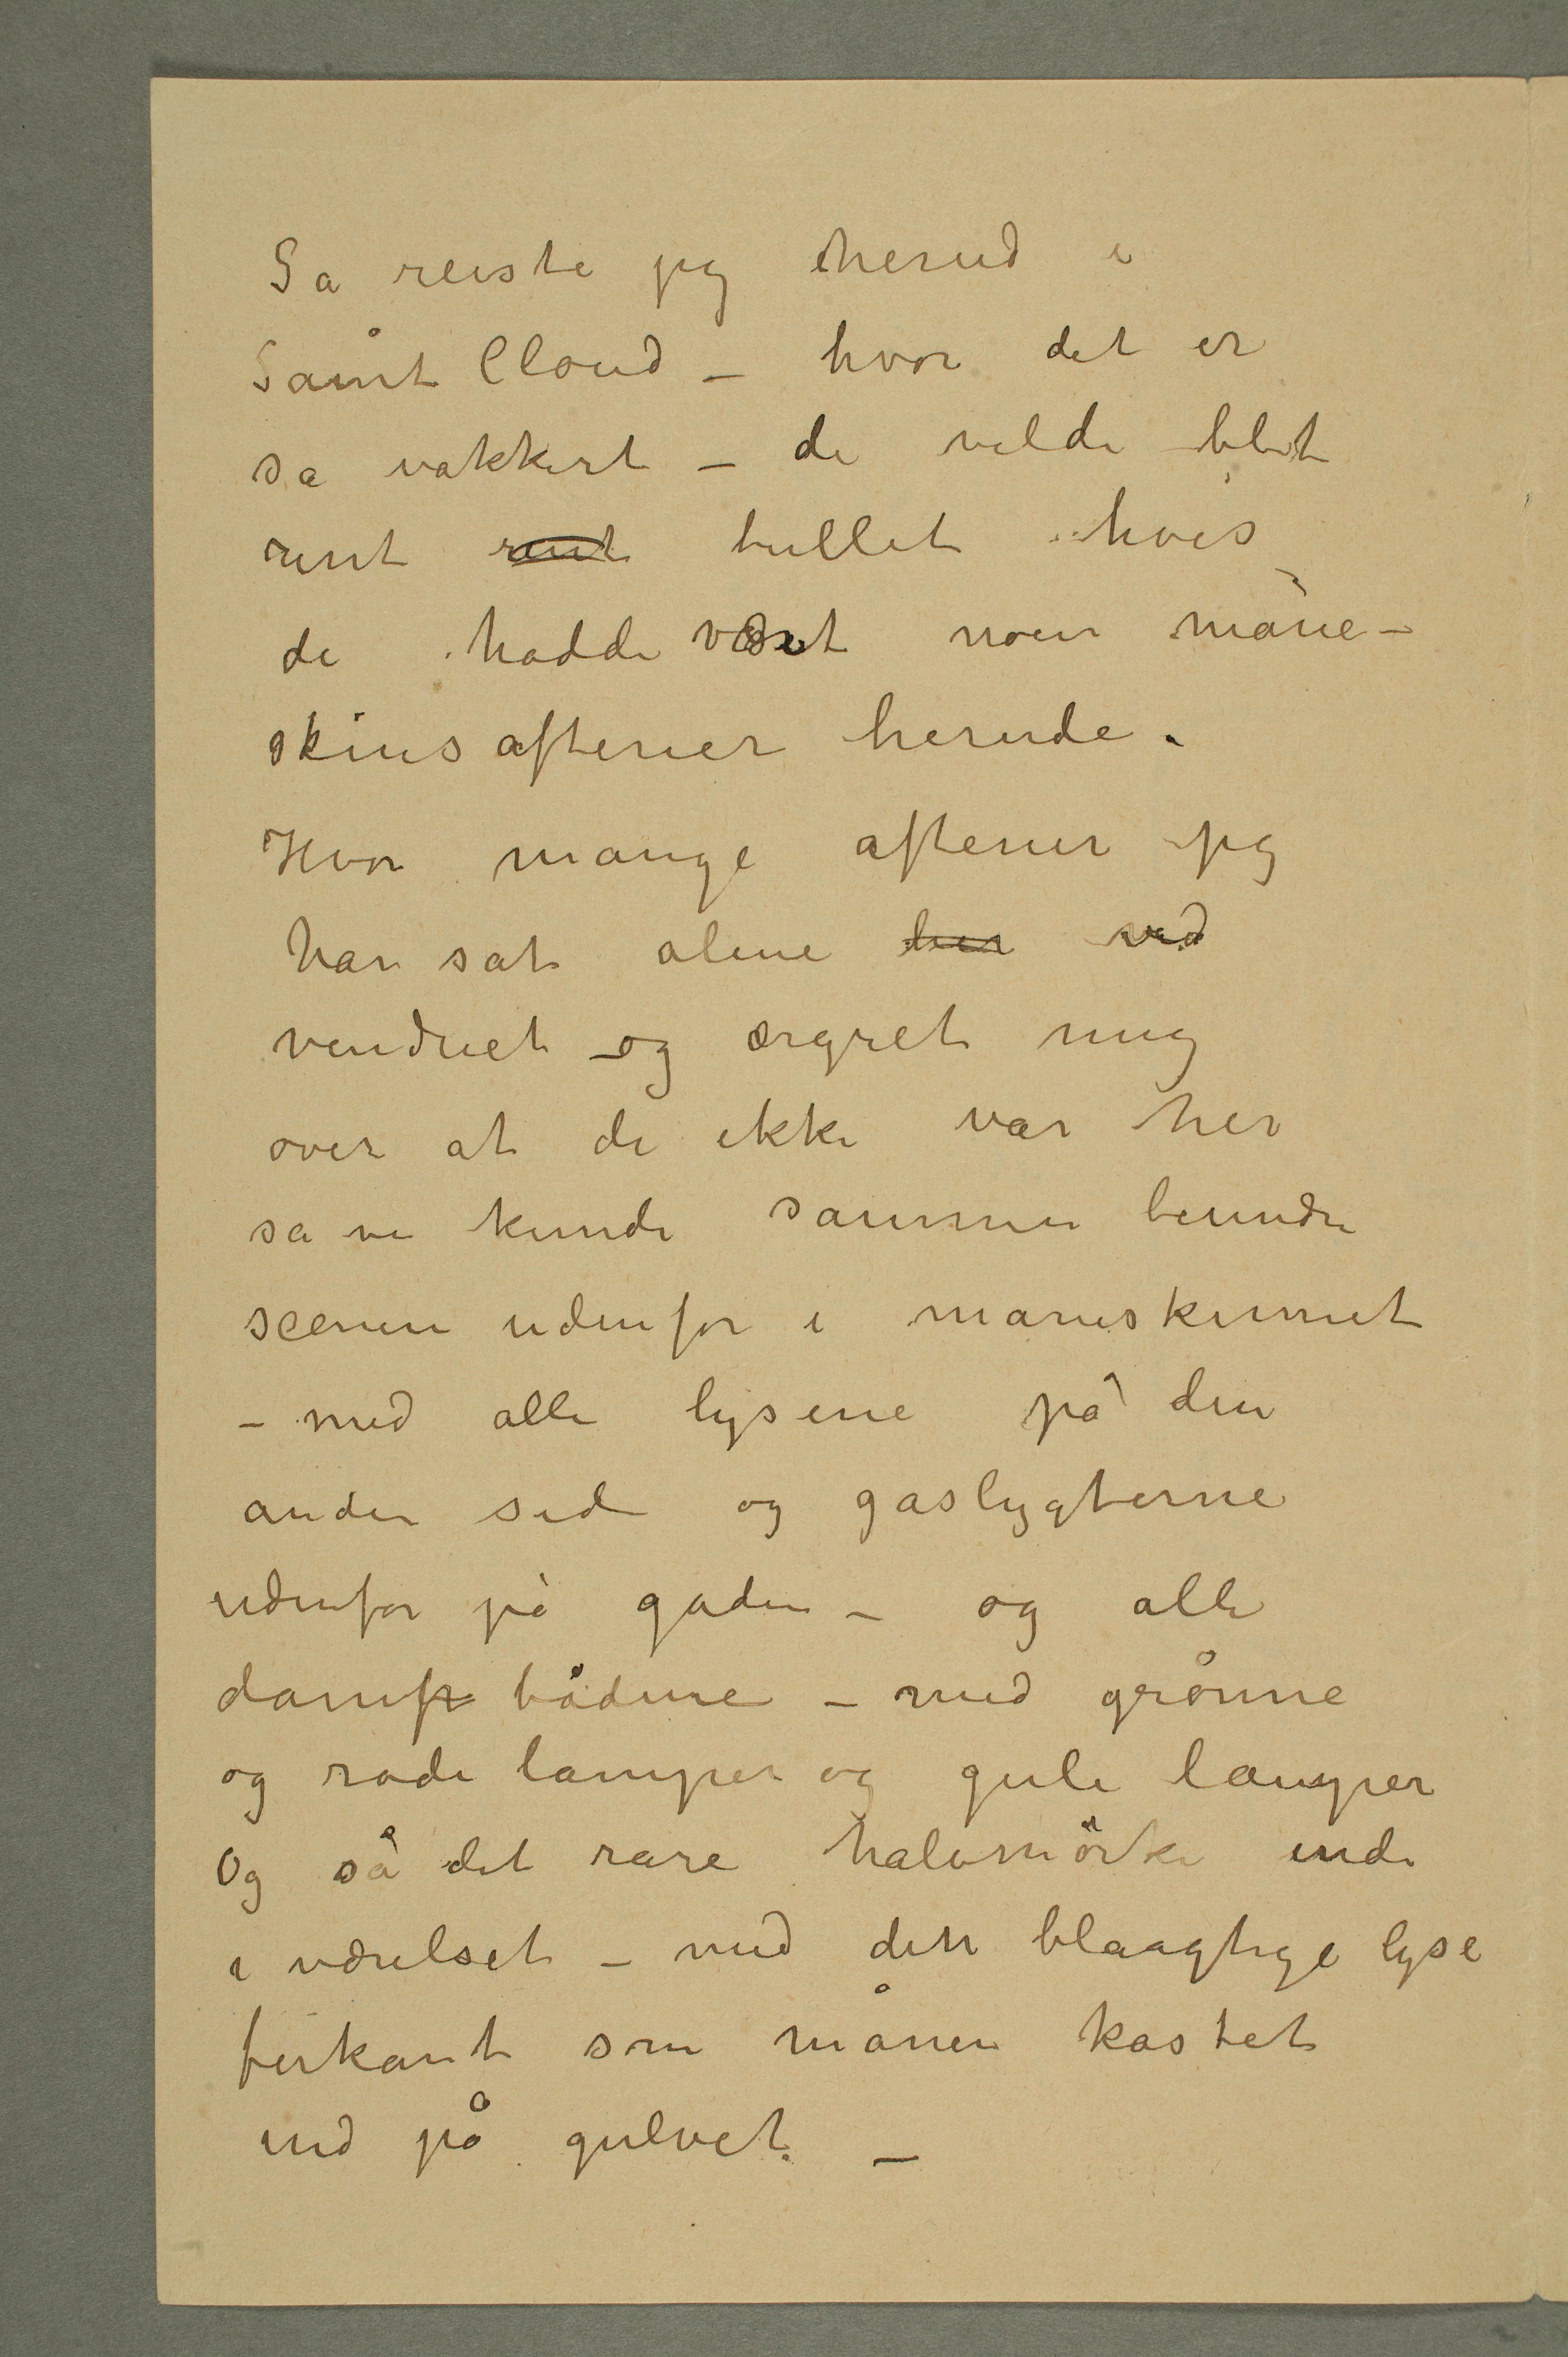 Sa reiste jeg herud i
Saint Cloud – hvor det er
sa vakkert – de vilde blit
rent rent tullet hvis
de hadde været noen måne-
skinsaftener herude.
Hvor mange aftener jeg
har sat alene her ved
vinduet og ærgret mig
over at de ikke var her
sa vi kunde sammen beundre
scenen udenfor i maneskinnet
– med alle lysene på den
anden side og gaslygterne
udenfor på gaden – og alle
dampbådene – med grønne
og røde lamper og gule lamper
Og så det rare halvmörke inde
i værelset – med den blaagtige lyse
firkant som månen kastet
ind på gulvet. –